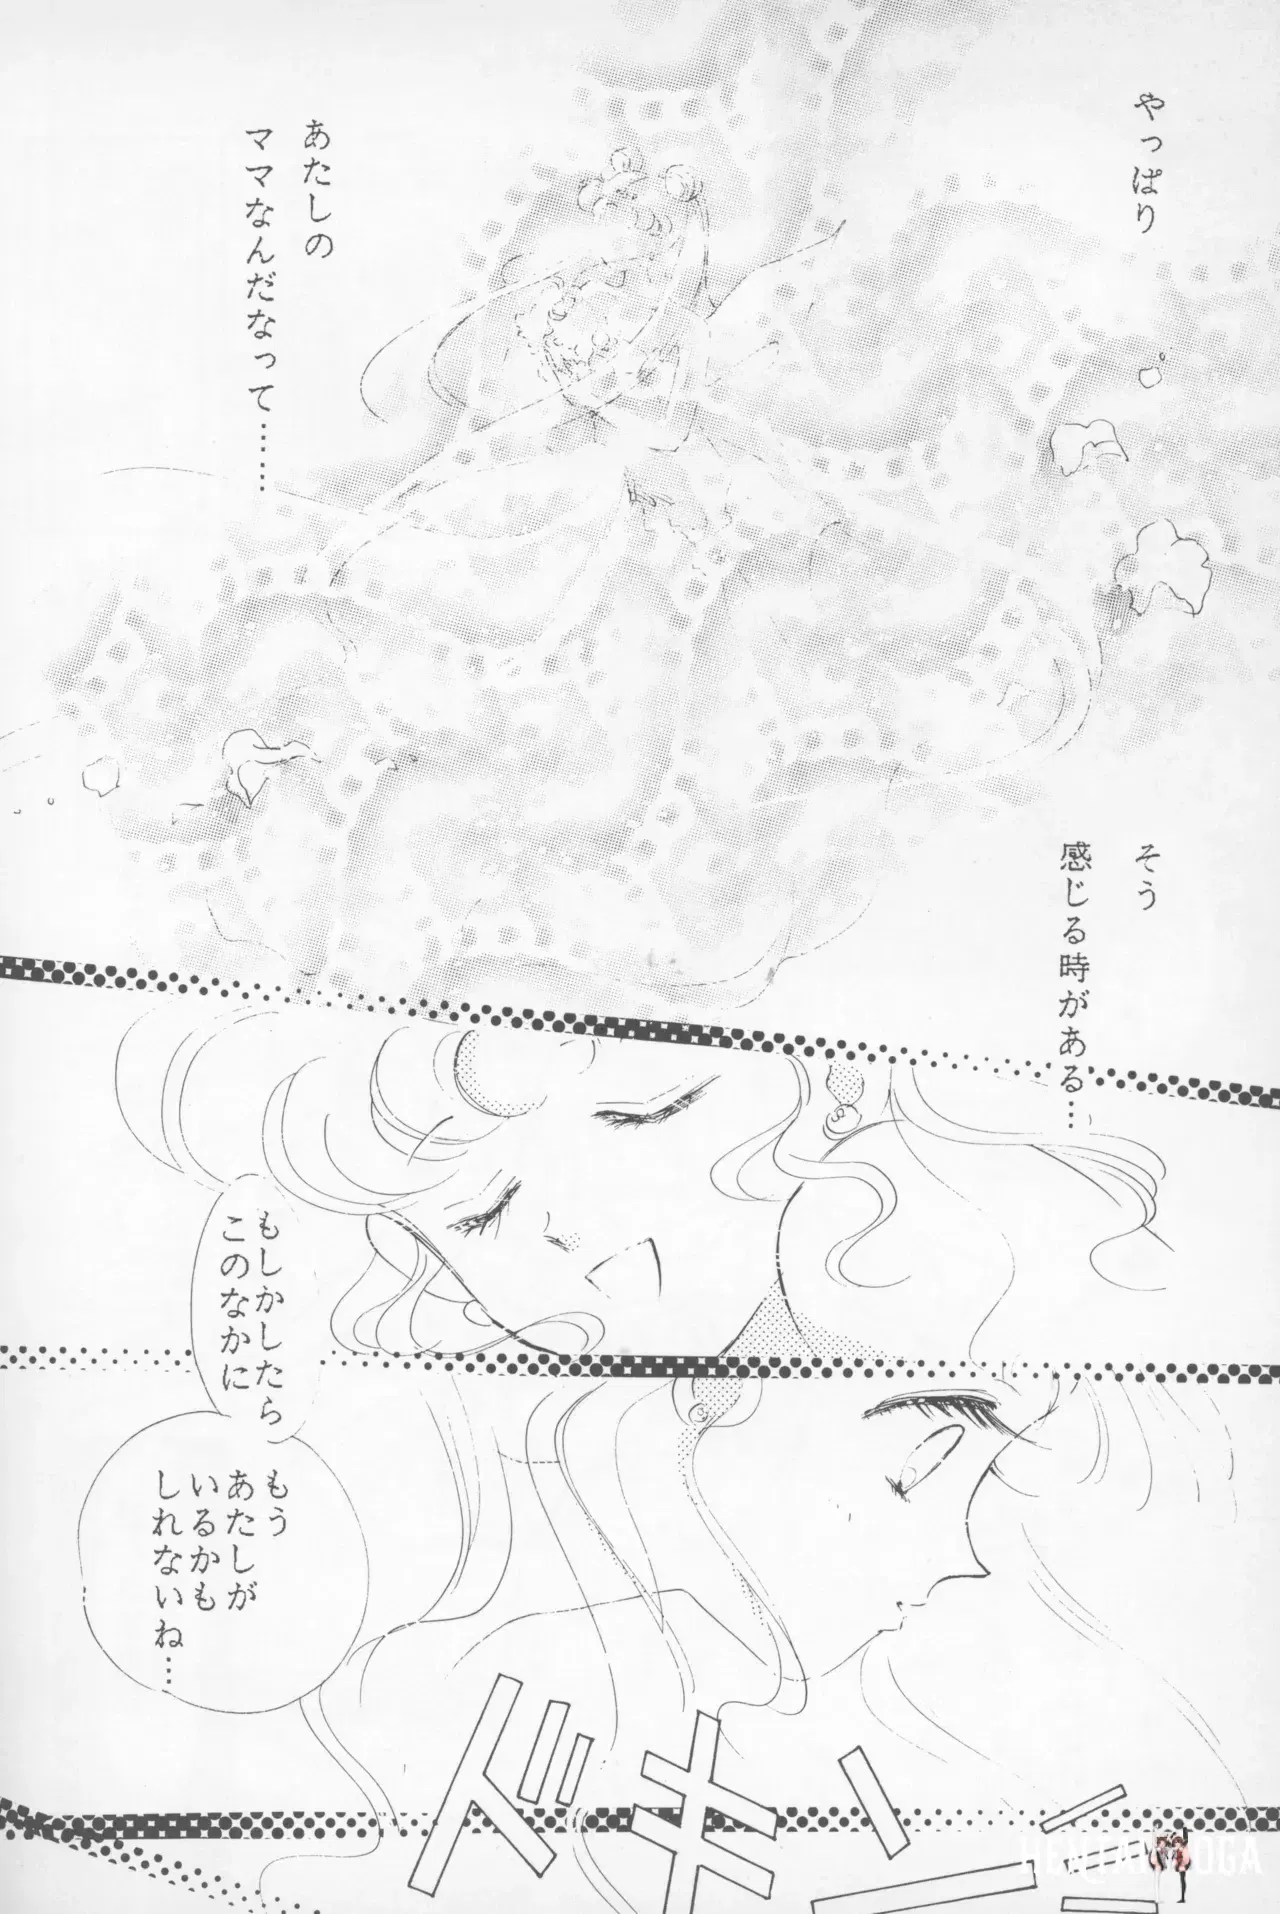 やっぱり
あたしの
ママなんだなって……
そう
感じる時がある…
もしかしたら
このなかに
もう
あたしが
いるかも
しれないね…
ドキン